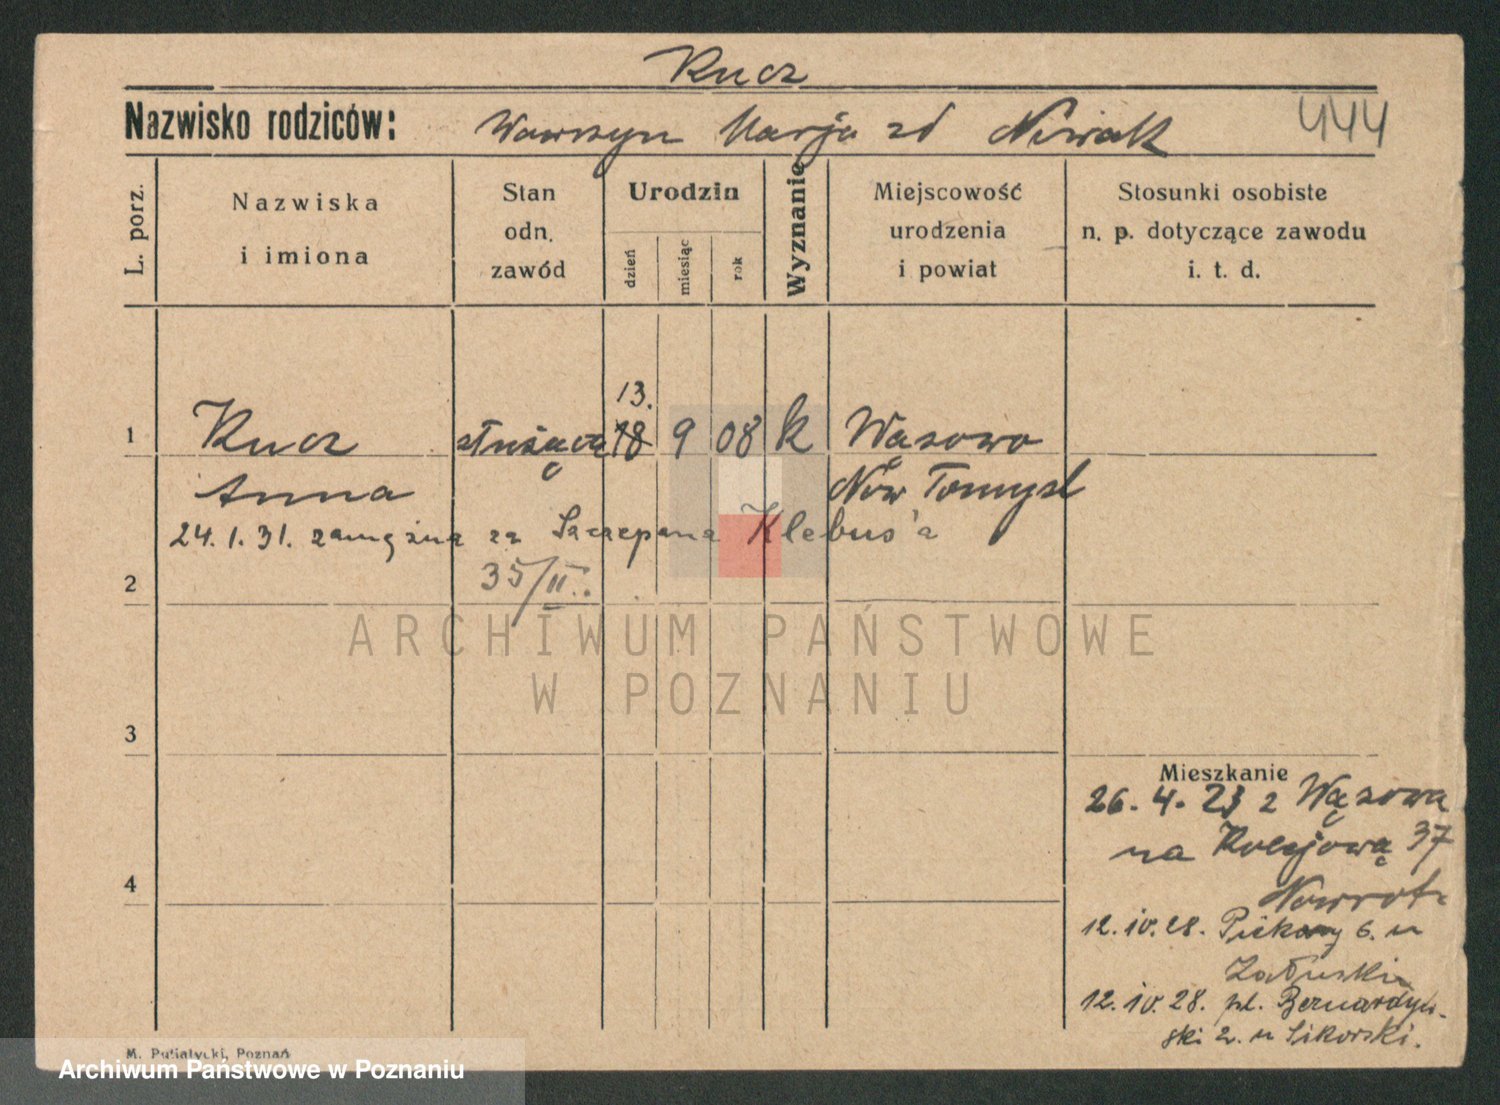 Rucz
Nazwisko rodziców: Wawrzyn Marja zd Nowak 444
L. porz.
Nazwiska
i imiona
Stan
odn.
zawód
Urodzin
dzień
miesiąc
rok
Wyznanie
Miejscowość
urodzenia
i powiat
Stosunki osobiste
n. p. dotyczące zawodu
i. t. d.
13.
1 Rucz służąca 18 9 08 k Wąsowo
Anna Nów Tomysl
24.1.31. zamężna za Szczepana Klebus'a
2 35/II.
ARCHIWUM PAŃSTWOWE
W POZNANIU
3
Mieszkanie
26.4. z Wąsowa
na 37
4
Nawrot
12.10.28. Piekary 6. u
Załuski
12.10.28. pl. Bernardyń-
ski 2. u Sikorski.
M. Putiatycki, Poznań
Archiwum Państwowe w Poznaniu